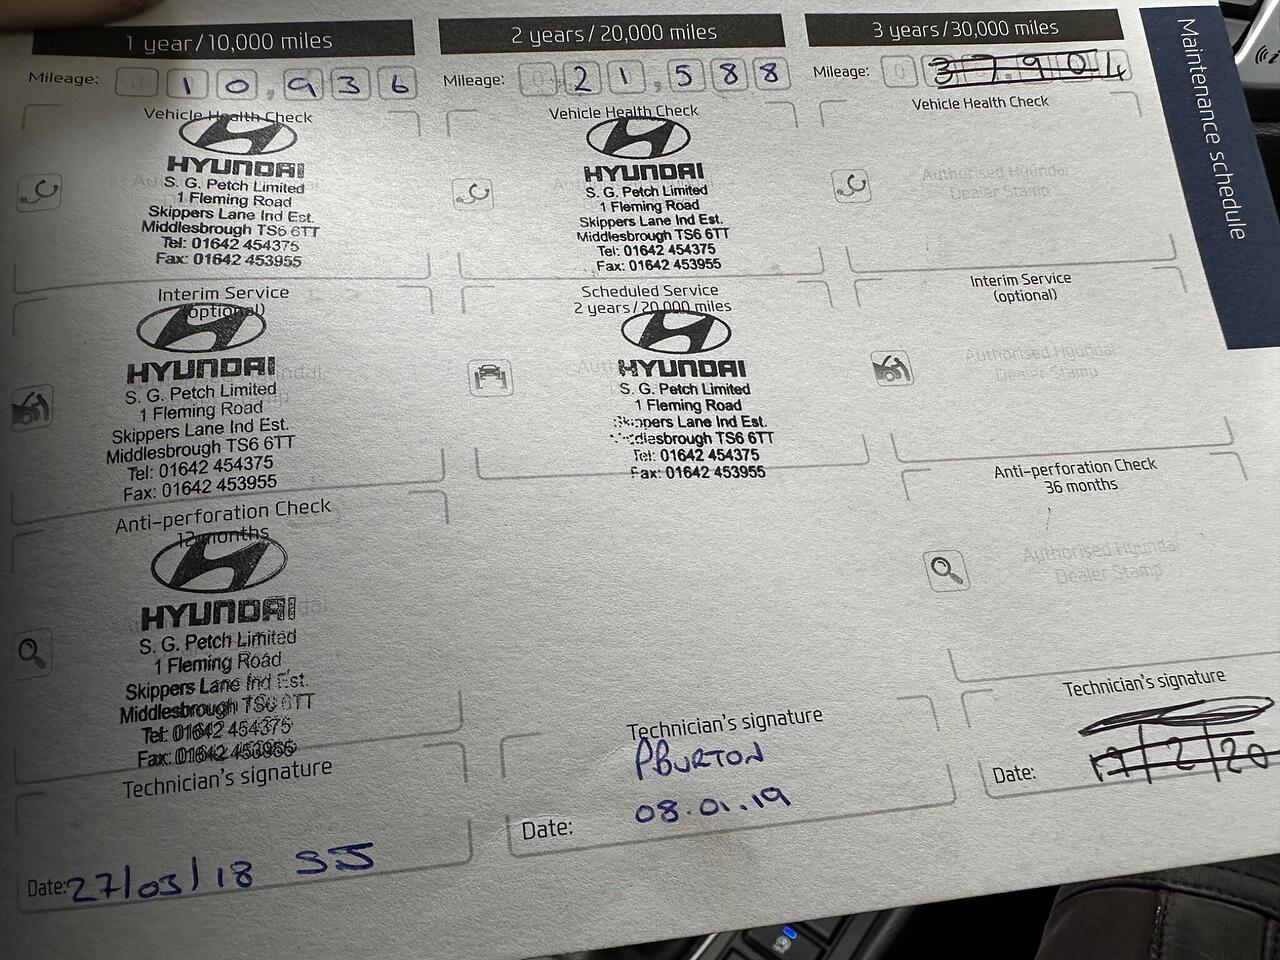 1 year/10,000 miles
Mileage: 0 10,936
Vehicle Health Check
HYUNDAI
S. G. Petch Limited
1 Fleming Road
Skippers Lane Ind Est.
Middlesbrough TS6 6TT
Tel: 01642 454375
Fax: 01642 453955
Interim Service
(optional)
HYUNDAI
S. G. Petch Limited
1 Fleming Road
Skippers Lane Ind Est.
Middlesbrough TS6 6TT
Tel: 01642 454375
Fax: 01642 453955
Anti-perforation Check
12 months
HYUNDAI
S. G. Petch Limited
1 Fleming Road
Skippers Lane Ind Est.
Middlesbrough TS6 6TT
Tel: 01642 454375
Fax: 01642 453955
Technician's signature
Date: 27/03/18 SJ
2 years/20,000 miles
Mileage: 0 21,588
Vehicle Health Check
HYUNDAI
S. G. Petch Limited
1 Fleming Road
Skippers Lane Ind Est.
Middlesbrough TS6 6TT
Tel: 01642 454375
Fax: 01642 453955
Scheduled Service
2 years/20,000 miles
HYUNDAI
S. G. Petch Limited
1 Fleming Road
Skippers Lane Ind Est.
Middlesbrough TS6 6TT
Tel: 01642 454375
Fax: 01642 453955
Technician's signature
PBURTON
Date: 08.01.19
3 years/30,000 miles
Mileage: 0 37,904
Vehicle Health Check
Authorised Hyundai
Dealer Stamp
Interim Service
(optional)
Authorised Hyundai
Dealer Stamp
Anti-perforation Check
36 months
Authorised Hyundai
Dealer Stamp
Technician's signature
Date: 17/2/20
Maintenance schedule